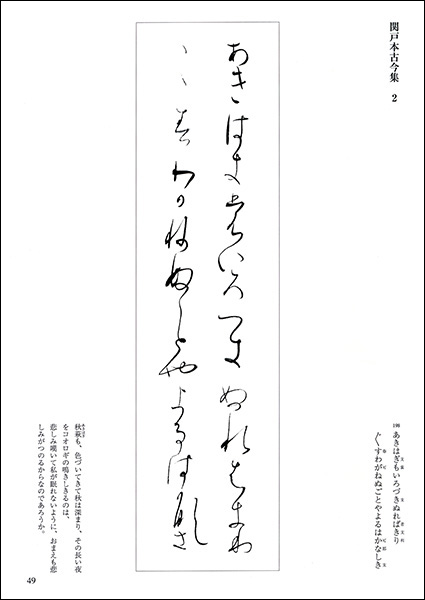 関戸本古今集 2
あきはきもいろつきぬれはきり
〳〵すわかねぬことやよるはかなしき
198 あきはぎもいろづきぬればきり
〴〵すわがねぬごとやよるはかなしき
秋萩も、色づいてきて秋は深まり、その長い夜
をコオロギの鳴きしきるのは、
悲しみ嘆いて私が眠れないように、おまえも悲
しみがつのるからなのであろうか。
49